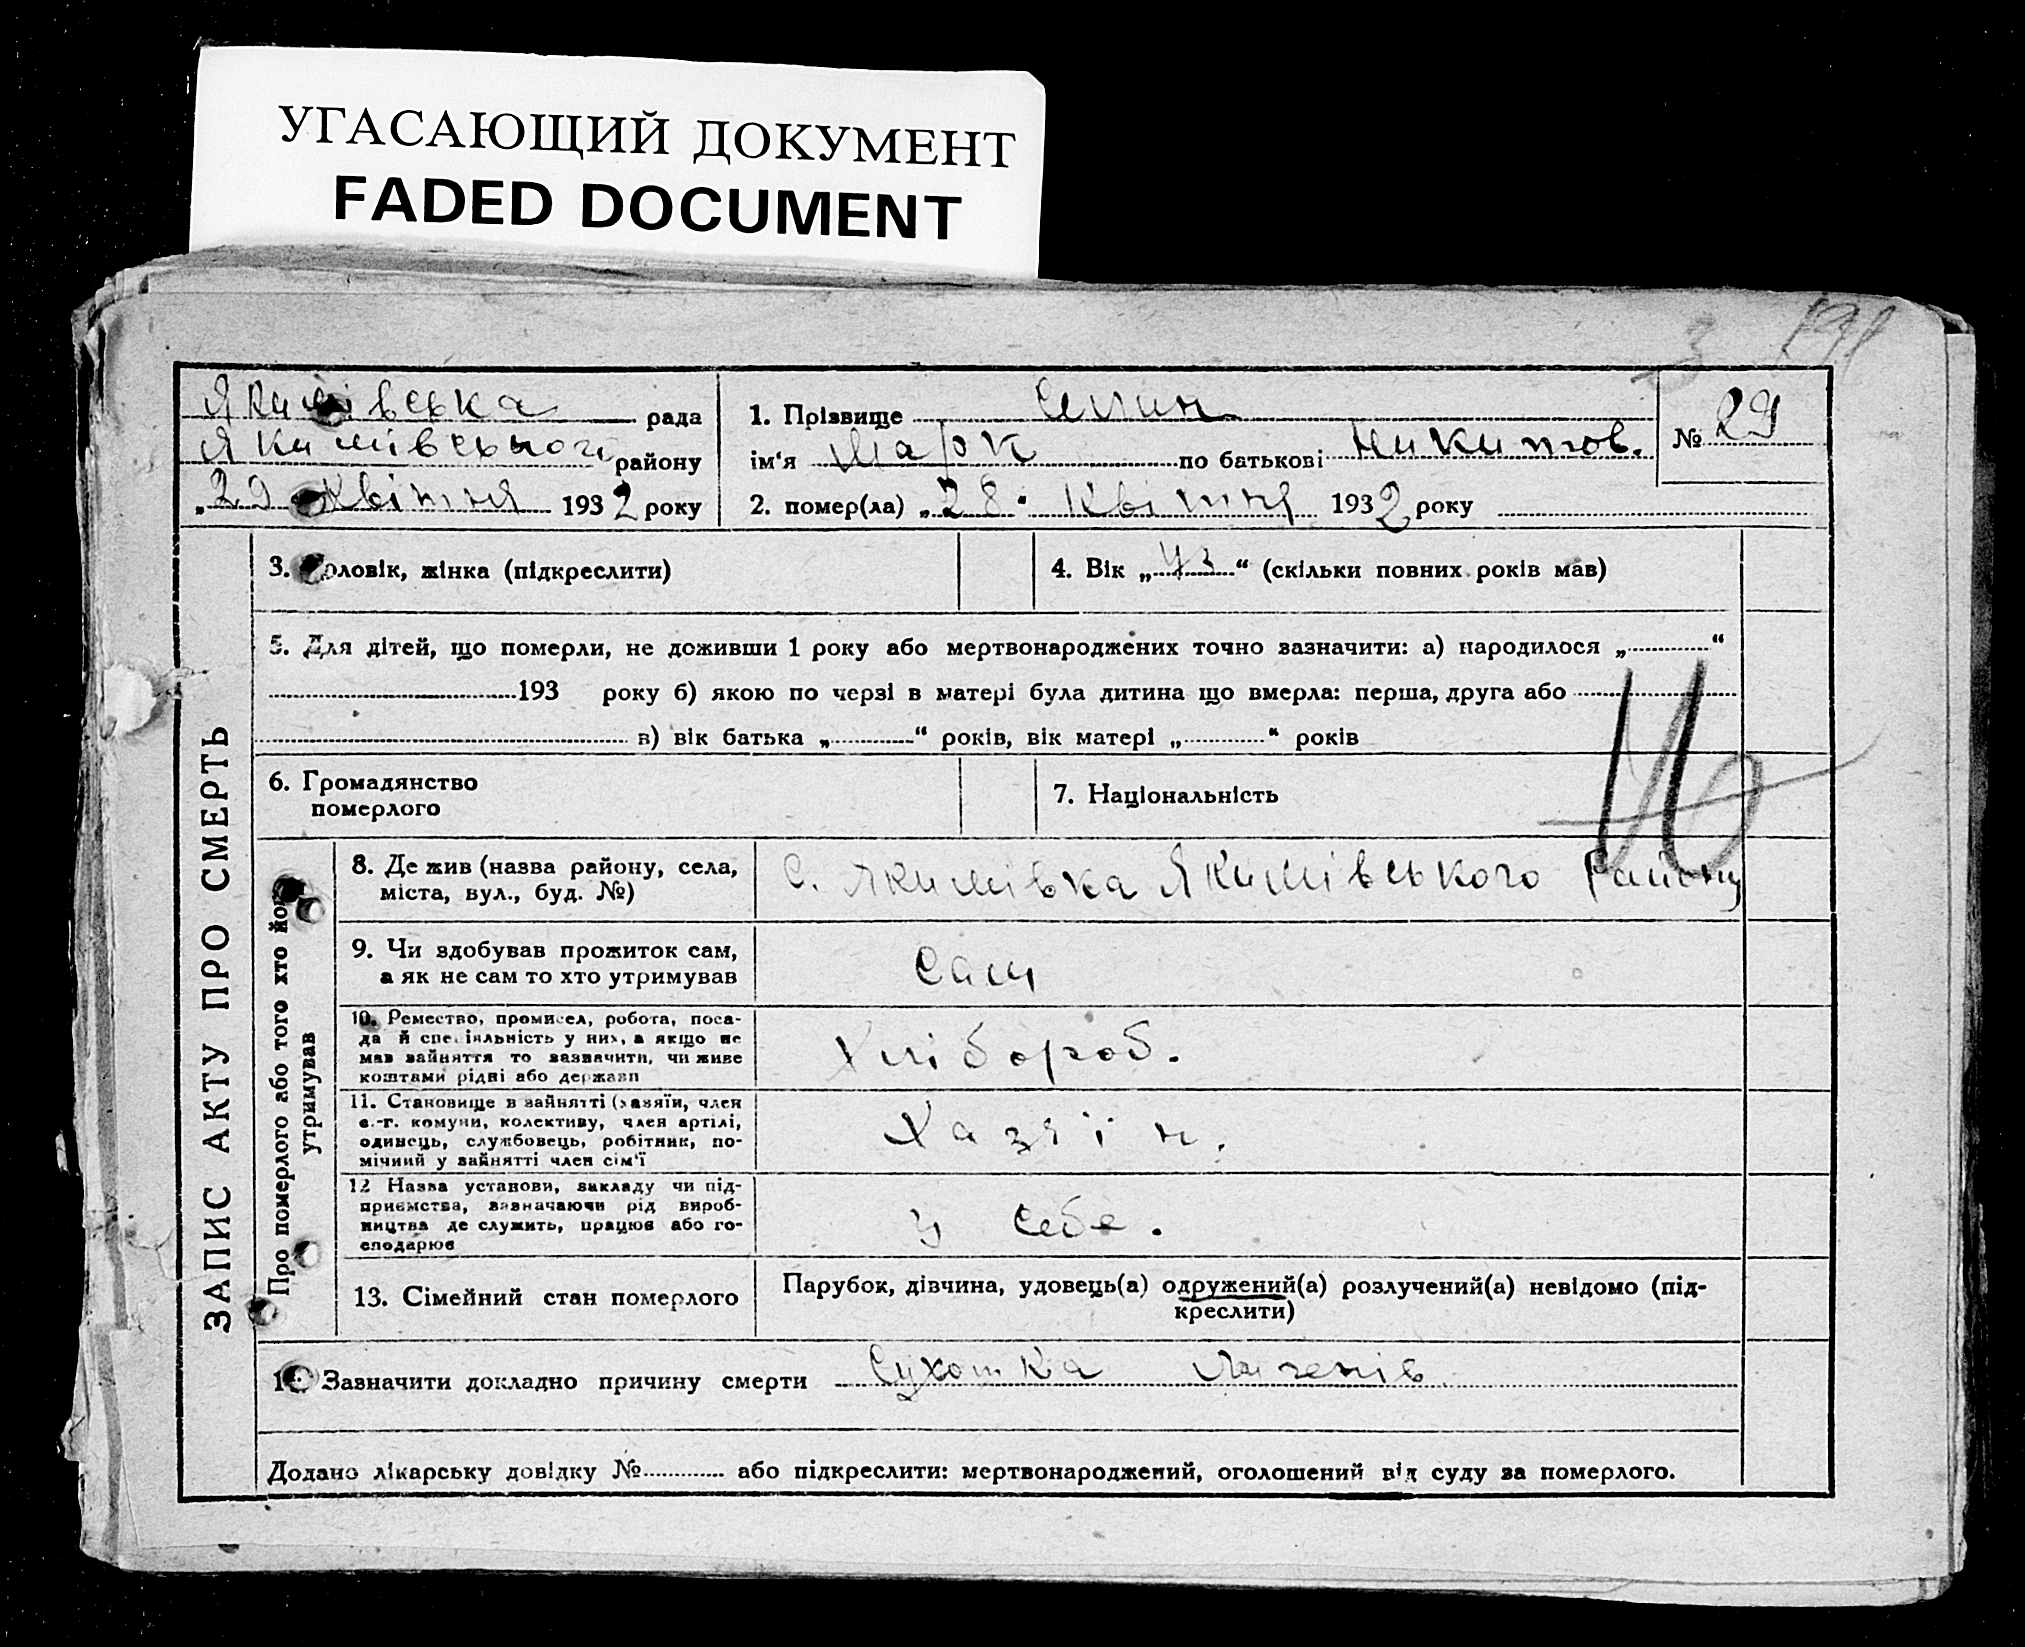 УГАСАЮЩИЙ ДОКУМЕНТ
FADED DOCUMENT
3
Якимівська рада
Якимівського району
„29 Квітня 1932 року
1. Прізвище
ім‘я Марк по батькові Никитов.
2. помер(ла) „28“ Квітня 1932 року
№ 29
ЗАПИС АКТУ ПРО СМЕРТЬ
3. Чоловік, жінка (підкреслити)
4. Вік „ “ (скільки повних років мав)
5. Для дітей, що померли, не доживши 1 року або мертвонароджених точно зазначити: а) народилося „ “
193 року б) якою по черзі в матері була дитина що вмерла: перша, друга або
в) вік батька „ “ років, вік матері „ “ років
6. Громадянство
померлого
7. Національність
Про померлого або того хто його
утримував
8. Де жив (назва району, села,
міста, вул., буд. №)
с. Якимівка Якимівського району
9. Чи здобував прожиток сам,
а як не сам то хто утримував
Сам
10. Ремество, промисел, робота, поса-
да й спеціяльність у них, а якщо не
мав зайняття то зазначити, чи живе
коштами рідні або держави
Хлібороб.
11. Становище в зайнятті (хазяїн, член
с.-г. комуни, колективу, член артілі,
одинець, службовець, робітник, по-
мічний у зайнятті член сім'ї
Хазяїн.
12 Назва установи, закладу чи під-
приємства, зазначаючи рід вироб-
ництва де служить, працює або го-
сподарює
у себе.
13. Сімейний стан померлого
Парубок, дівчина, удовець(а) одружений(а) розлучений(а) невідомо (під-
креслити)
14. Зазначити докладно причину смерти Сухотка легенів
Додано лікарську довідку № або підкреслити: мертвонароджений, оголошений від суду за померлого.